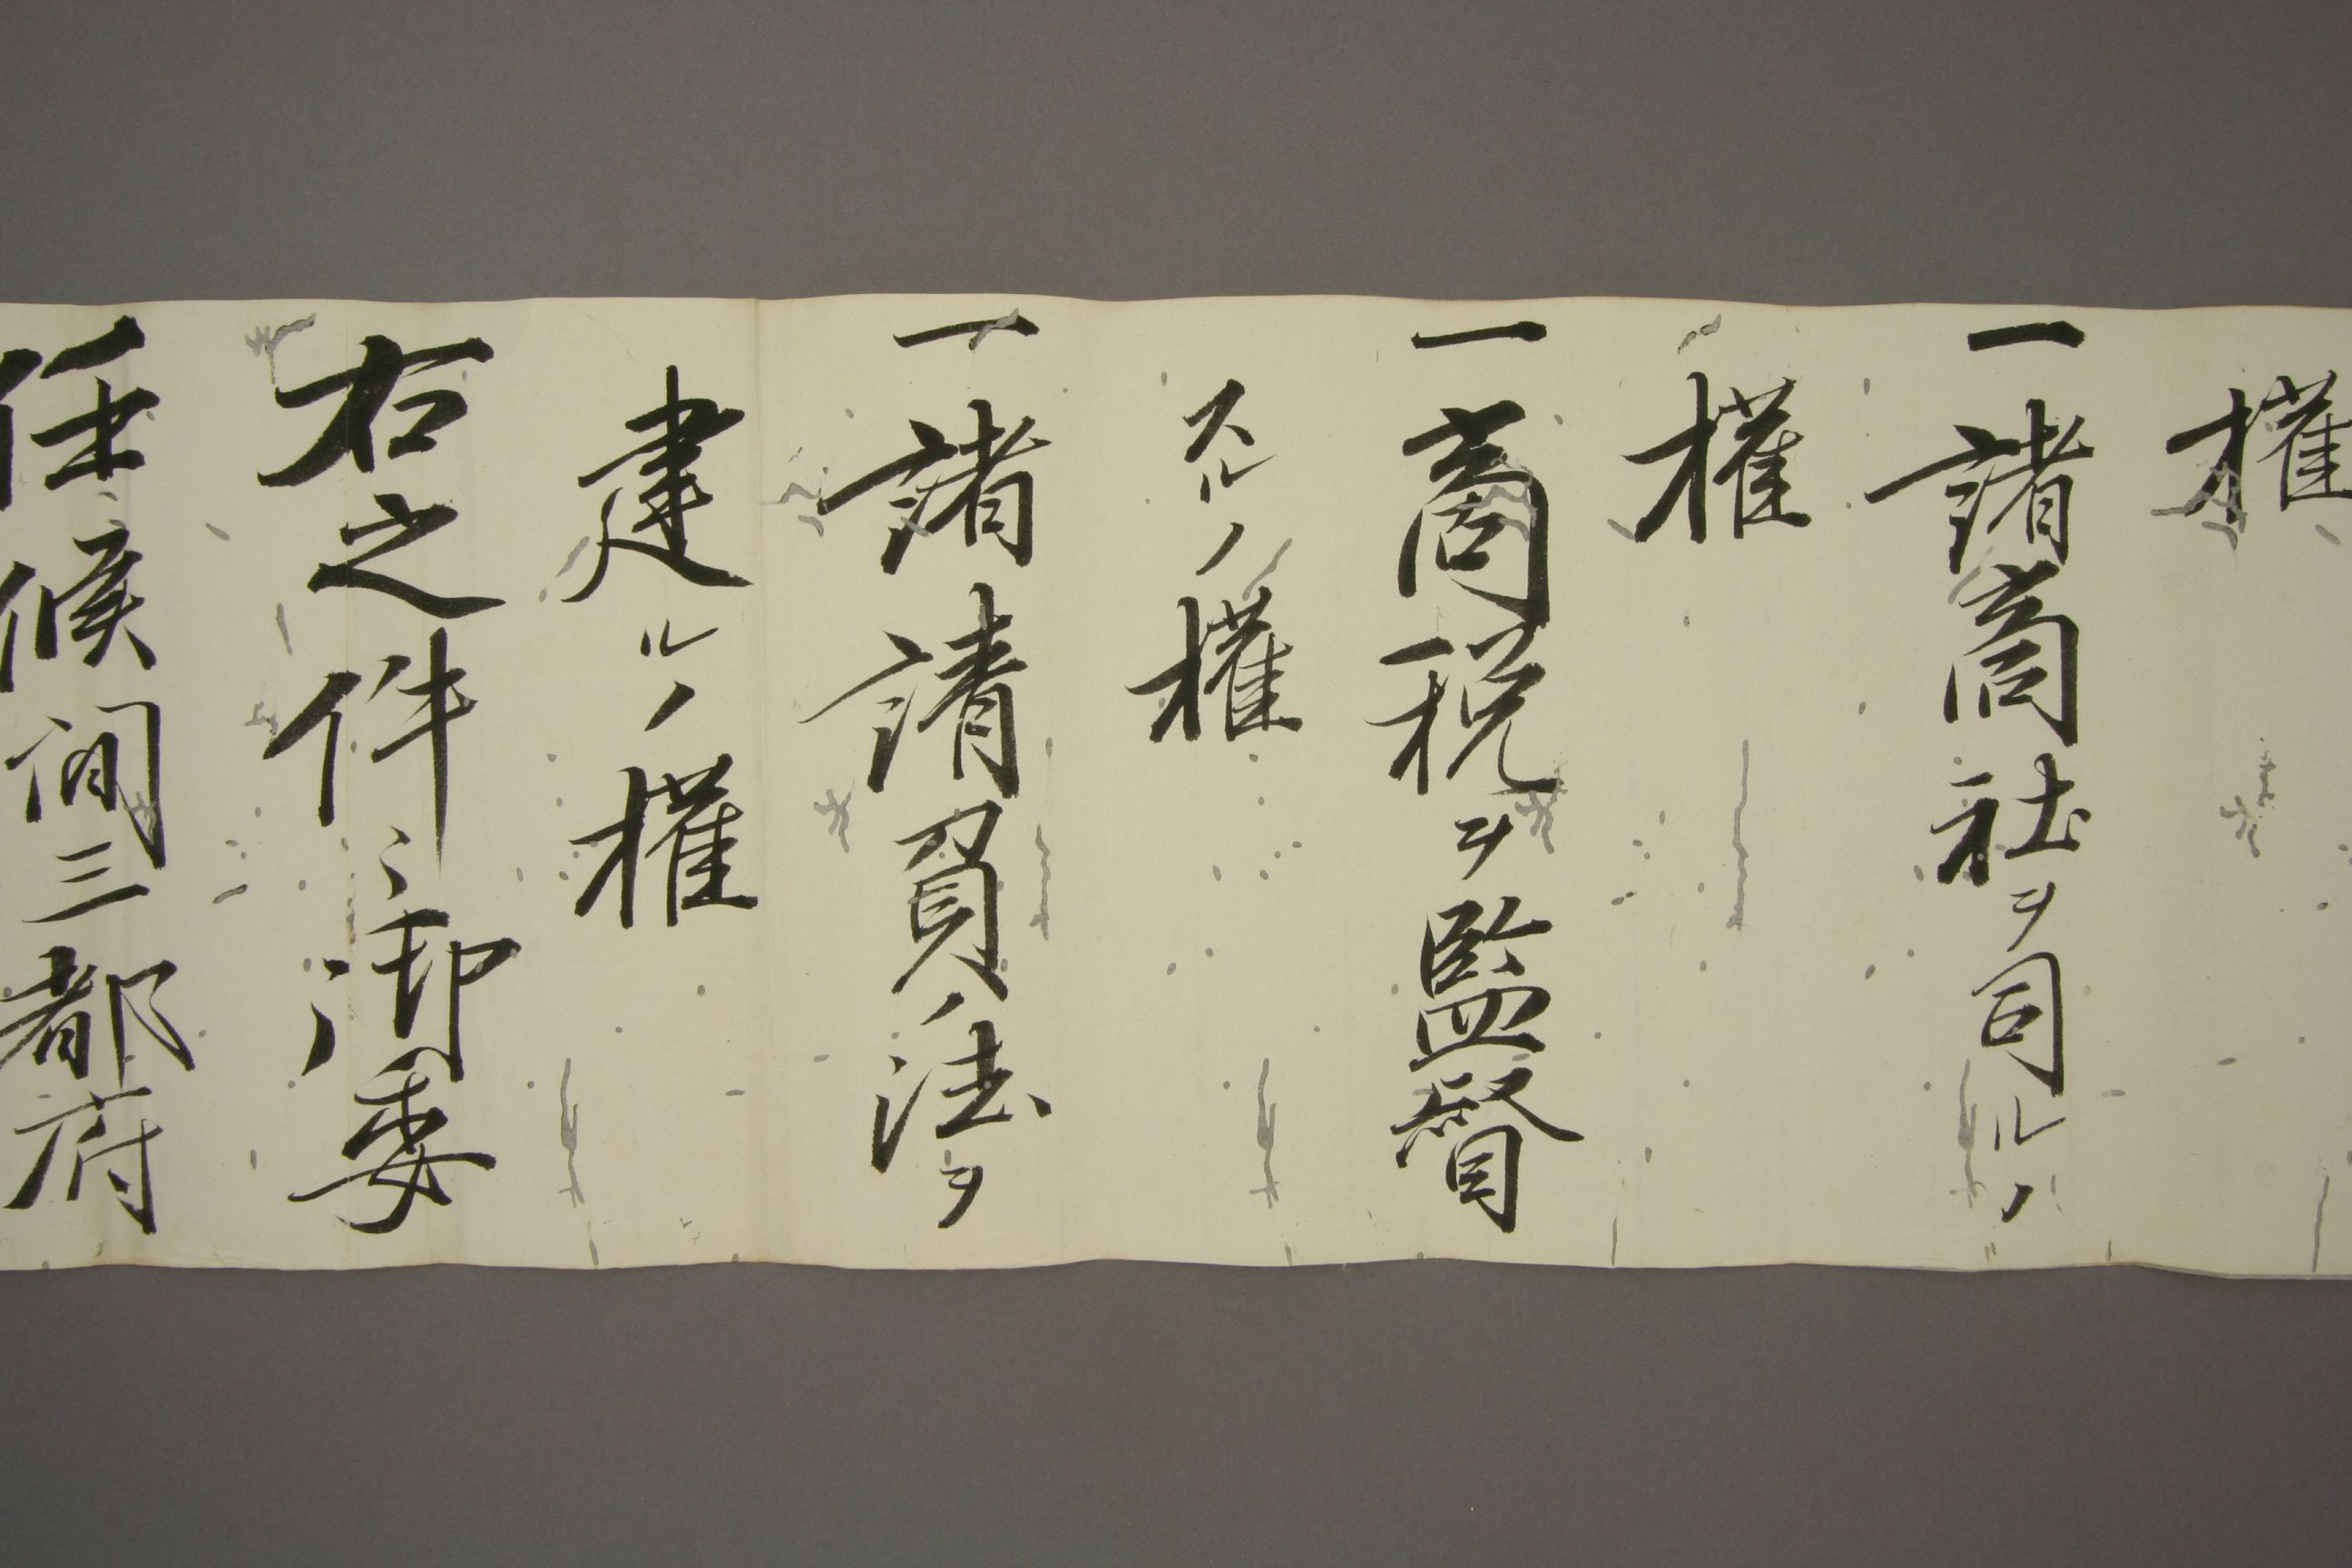 權
一諸商社ヲ司ルノ
權
一商税ヲ監督
スルノ權
一諸請負ノ法ヲ
建ルノ權
右之件〻御委
任候間三都府